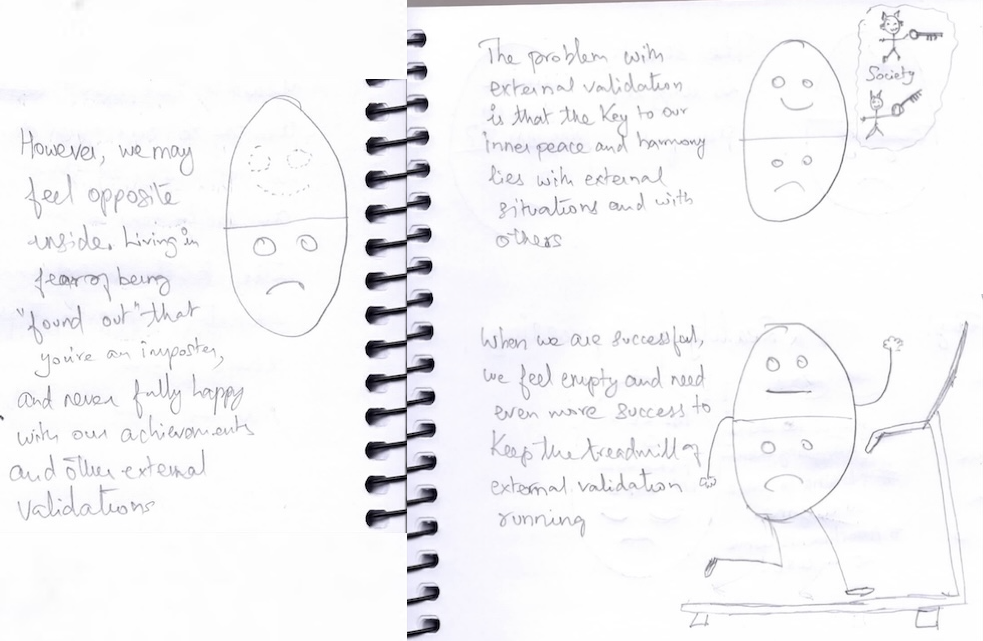 However, we may
feel opposite
inside. Living in
fear of being
"found out" that
you're an imposter,
and never fully happy
with our achievements
and other external
validations
The problem with
external validation
is that the Key to our
inner peace and harmony
lies with external
situations and with
others
Society
When we are successful,
we feel empty and need
even more success to
Keep the treadmill of
external validation
running